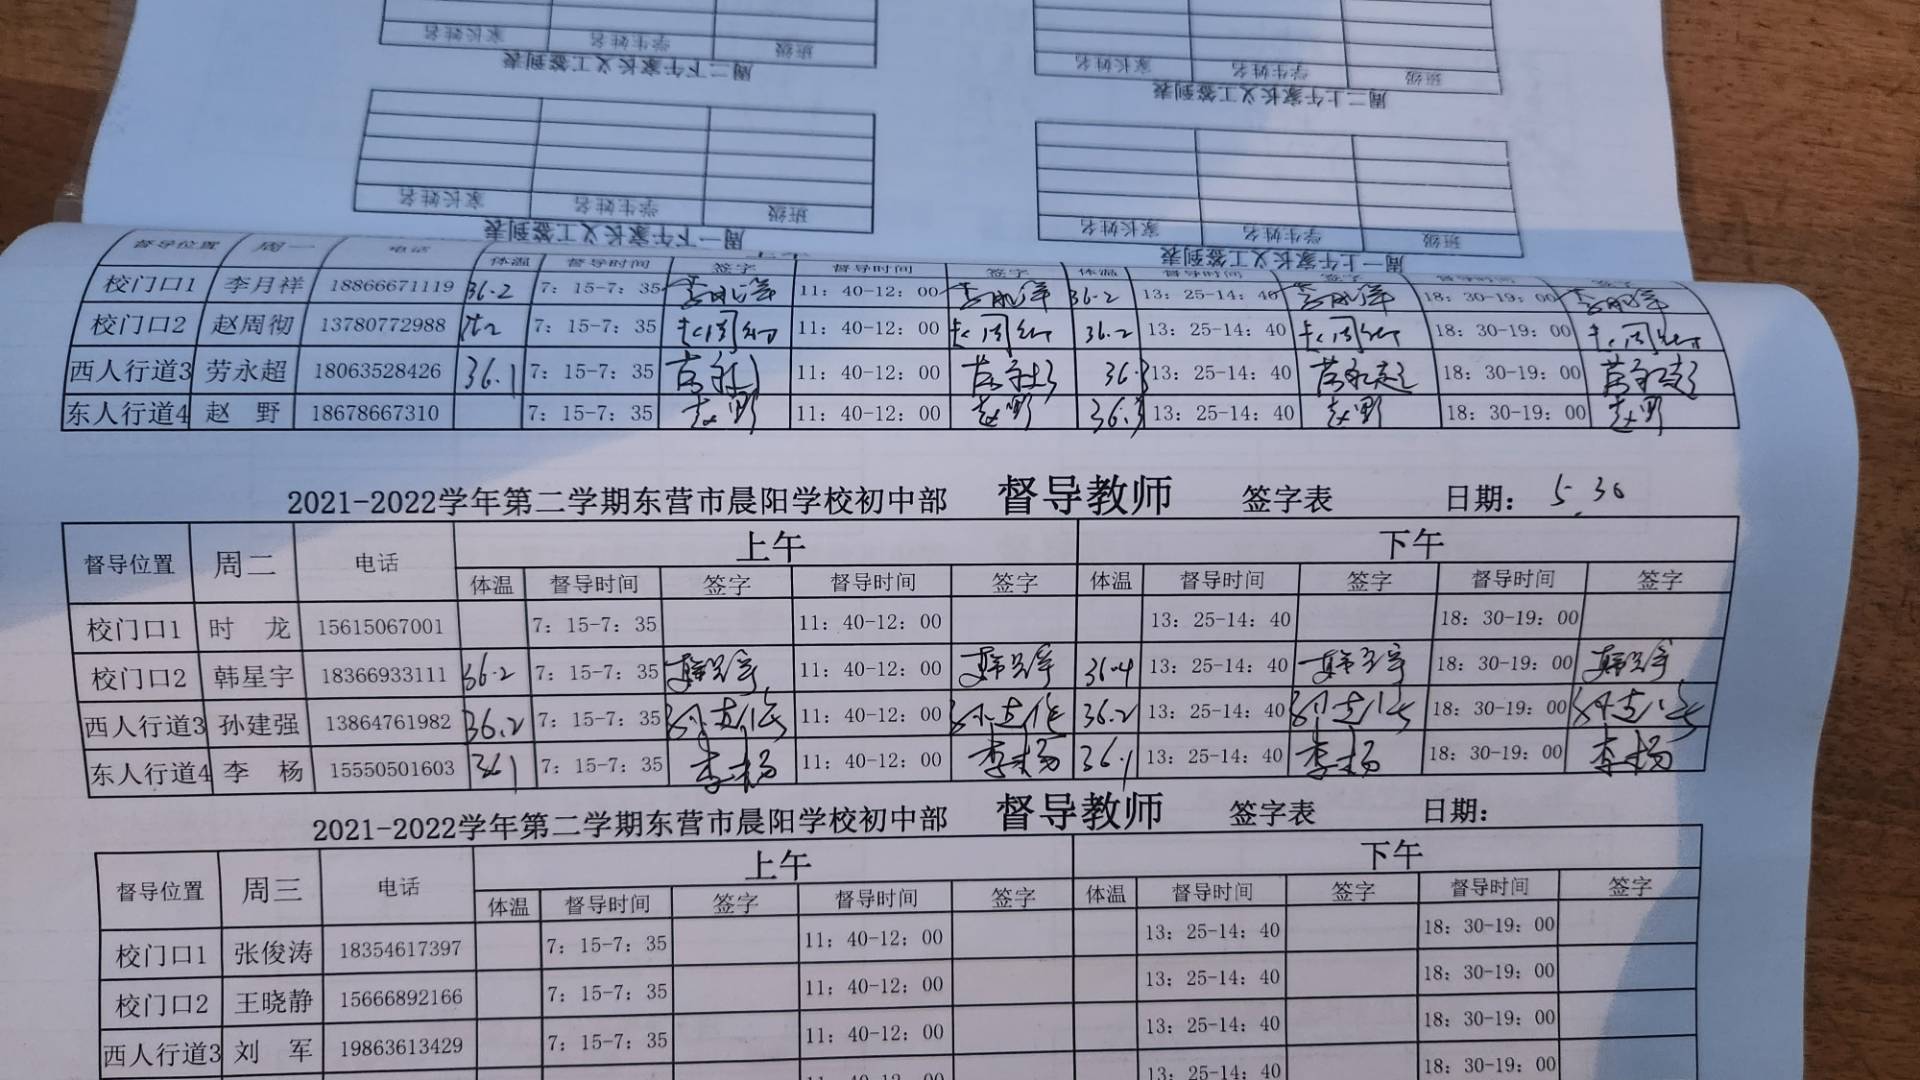 家长姓名 学生姓名 班级
周二下午家长义工签到表
家长姓名 学生姓名 班级
周二上午家长义工签到表
家长姓名 学生姓名 班级
周一下午家长义工签到表
家长姓名 学生姓名 班级
周一上午家长义工签到表
督导位置 周一 电话 体温 督导时间 签字 督导时间 签字 体温 督导时间 签字 督导时间 签字
校门口1 李月祥 18866671119 36.2 7：15-7：35 李月祥 11：40-12：00 李月祥 36.2 13：25-14：40 李月祥 18：30-19：00 李月祥
校门口2 赵周彻 13780772988 7：15-7：35 赵周彻 11：40-12：00 赵周彻 36.2 13：25-14：40 赵周彻 18：30-19：00 赵周彻
西人行道3 劳永超 18063528426 36.1 7：15-7：35 劳永超 11：40-12：00 劳永超 36.3 13：25-14：40 劳永超 18：30-19：00 劳永超
东人行道4 赵 野 18678667310 7：15-7：35 赵野 11：40-12：00 赵野 36.3 13：25-14：40 赵野 18：30-19：00 赵野
2021-2022学年第二学期东营市晨阳学校初中部 督导教师 签字表 日期： 5.30
督导位置 周二 电话 上午 下午
体温 督导时间 签字 督导时间 签字 体温 督导时间 签字 督导时间 签字
校门口1 时 龙 15615067001 7：15-7：35 11：40-12：00 13：25-14：40 18：30-19：00
校门口2 韩星宇 18366933111 36.2 7：15-7：35 韩星宇 11：40-12：00 韩星宇 36.4 13：25-14：40 韩星宇 18：30-19：00 韩星宇
西人行道3 孙建强 13864761982 36.2 7：15-7：35 孙建强 11：40-12：00 孙建强 36.2 13：25-14：40 孙建强 18：30-19：00 孙建强
东人行道4 李 杨 15550501603 36.1 7：15-7：35 李杨 11：40-12：00 李杨 36.1 13：25-14：40 李杨 18：30-19：00 李杨
2021-2022学年第二学期东营市晨阳学校初中部 督导教师 签字表 日期：
督导位置 周三 电话 上午 下午
体温 督导时间 签字 督导时间 签字 体温 督导时间 签字 督导时间 签字
校门口1 张俊涛 18354617397 7：15-7：35 11：40-12：00 13：25-14：40 18：30-19：00
校门口2 王晓静 15666892166 7：15-7：35 11：40-12：00 13：25-14：40 18：30-19：00
西人行道3 刘 军 19863613429 7：15-7：35 11：40-12：00 13：25-14：40 18：30-19：00
13：25-14：40 18：30-19：00